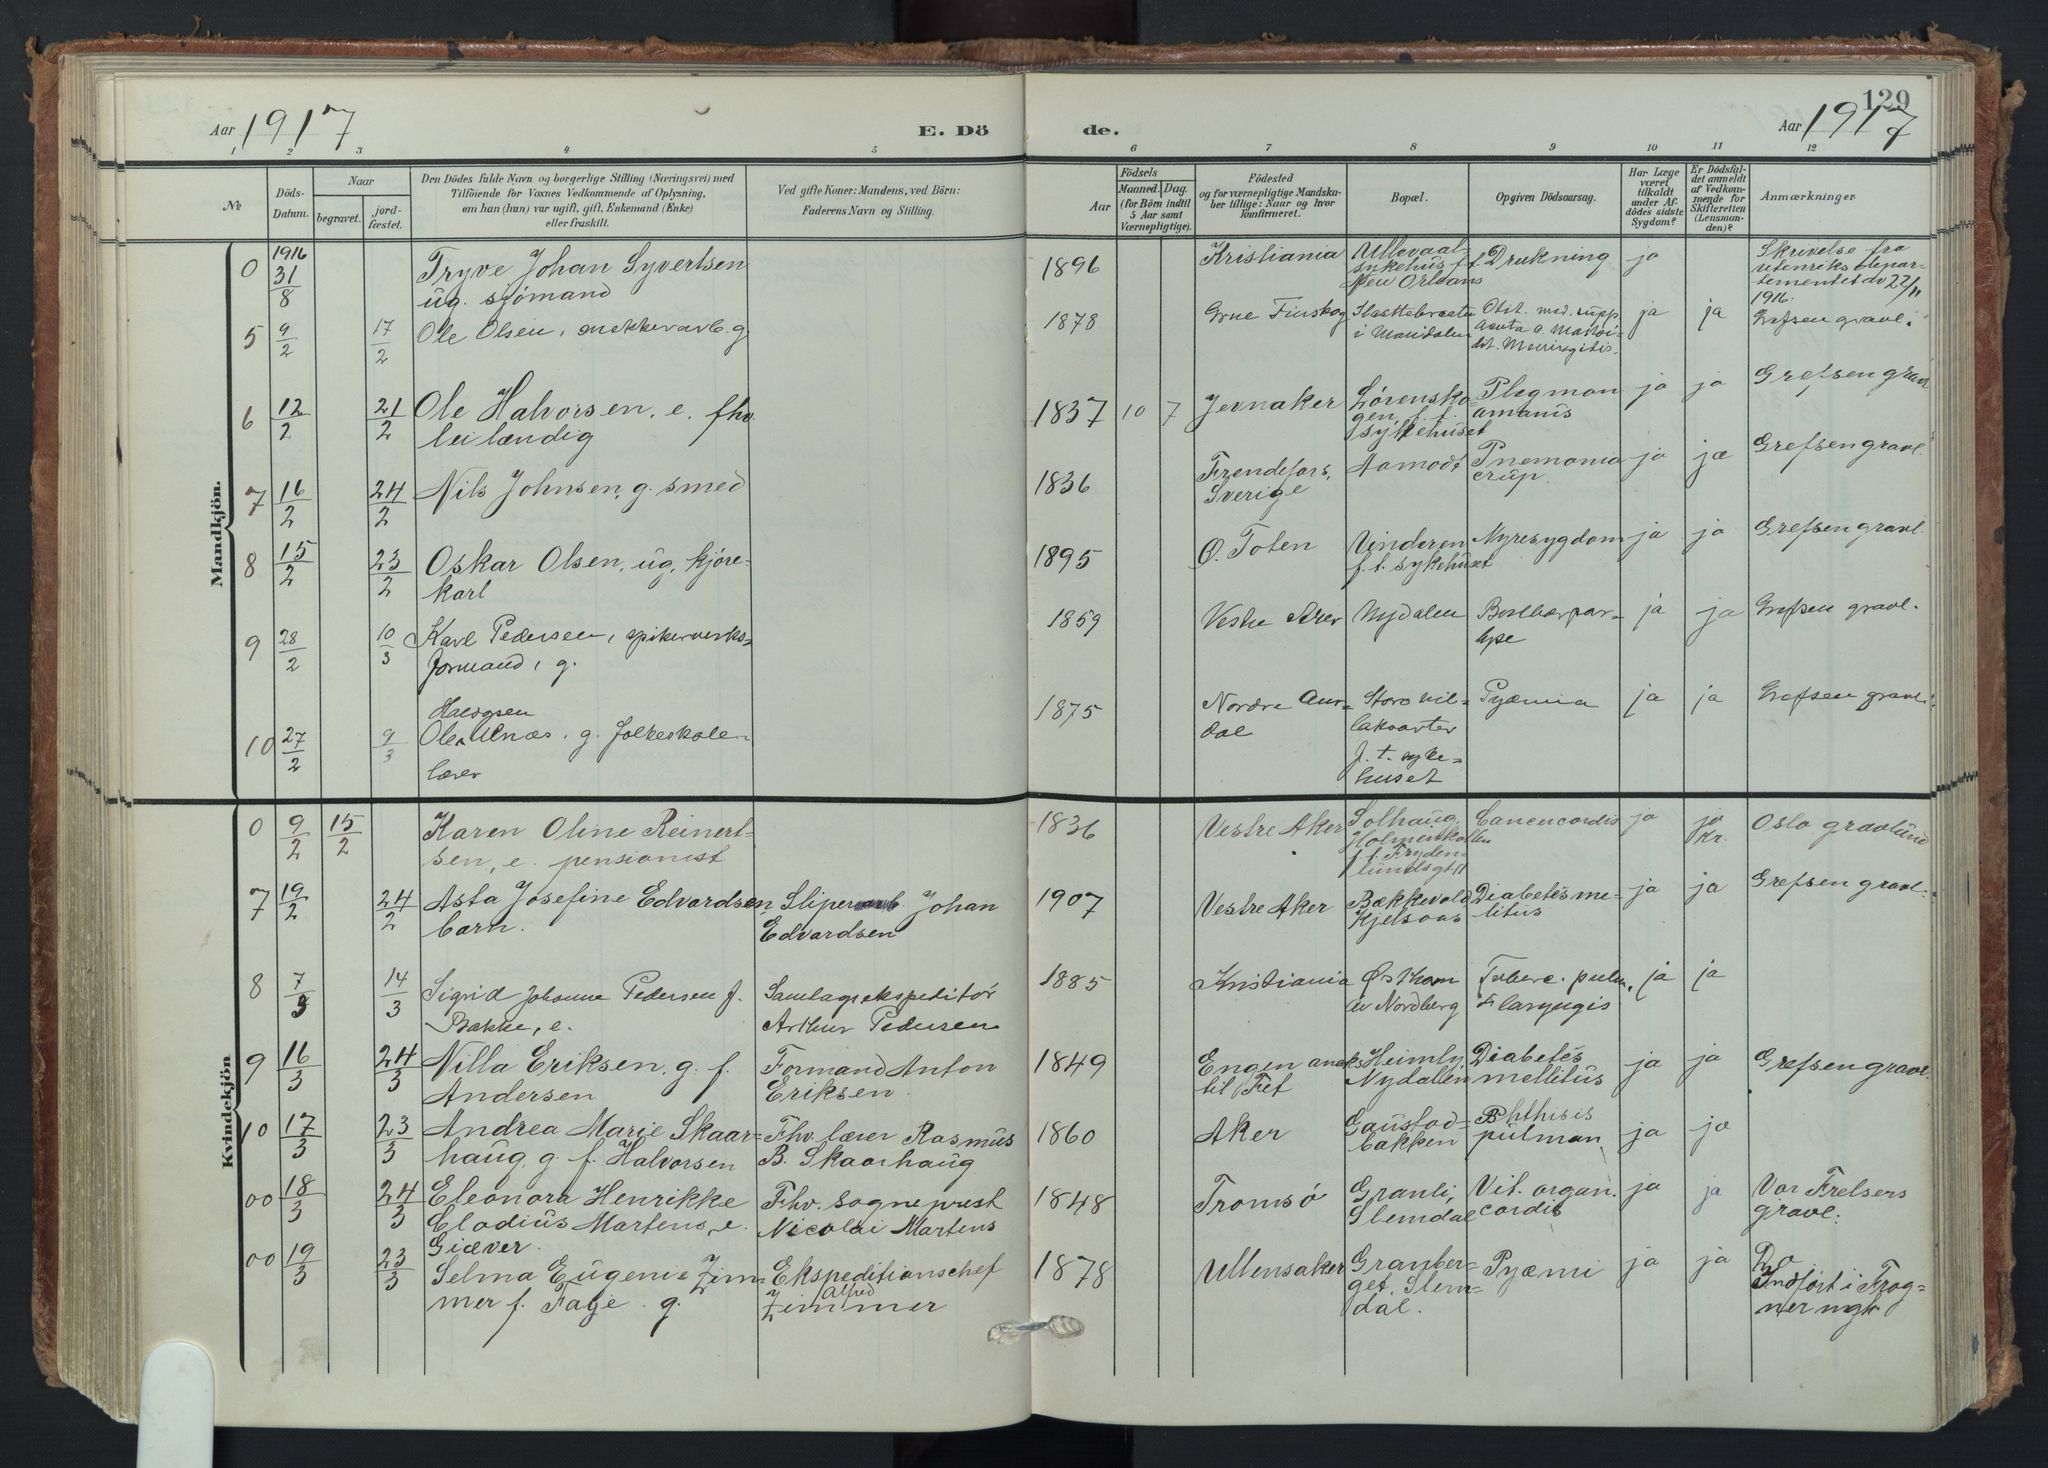 129
Aar 1917
E. Dö
de.
Aar 1917
1 2 3 4 5 6 7 8 9 10 11 12
№
Döds-
Datum.
Naar
begravet.
jord-
fæstet.
Den Dödes fulde Navn og borgerlige Stilling (Næringsvei) med
Tilföiende for Voxnes Vedkommende af Oplysning,
om han (hun) var ugift, gift, Enkemand (Enke)
eller fraskilt.
Ved gifte Koner: Mandens, ved Börn:
Faderens Navn og Stilling.
Födsels
Aar
Maaned. Dag.
(for Börn indtil
5 Aar samt
Værnepligtige).
Födested
og for værnepligtige Mandska-
ber tillige: Naar og hvor
Konfirmeret.
Bopæl.
Opgiven Dödsaarsag.
Har Læge
været
tilkaldt
under Af-
dödes sidste
Sygdom?
Er Dödsfal-
det anmeldt
af Vedkom-
mende for
Skifteretten
(Lensman-
den)?
Anmærkninger
Mandkjön.
0 1916 31/8 Tryve Johan Syvertsen
ug. sjømand
1896 Kristiania Ullevaal
sykehus f.
New Orleans
Drukning ja
Skrivelse fra
utenriksdepar-
tementet dv 22/11
1916.
5 9/2 17/2 Ole Olsen, snekkerarb. g
1878 Grue Finskog
i Maridalen
Otit. med. supp.
acuta
Meningitis.
ja ja Grefsen gravl.
6 12/2 21/2 Ole Halvorsen, e. fhv.
leilændig
1837 10 7 Jevnaker Lørensko-
gen f. t.
sykehuset
Plegmon
amanus
ja ja Grefsen gravl
7 16/2 24/2 Nils Johnsen, g. smed
1836 Frendefors,
Sverige
Aamodt Pnemonia
crup.
ja ja Grefsen gravl.
8 15/2 23/2 Oskar Olsen, ug. kjøre-
karl
1895 Ø. Toten Vinderen
f. t. sykehuset
Nyresygdom ja ja Grefsen gravl.
9 28/2 10/3 Karl Pedersen, spikerverks-
formand, g.
1859 Vestre Aker Nydalen
ja ja Grefsen gravl.
10 27/2 9/3 Halvgsen
Ole Ulnæs. g. folkeskole-
lærer
1875 Nordre Aur-
dal
Storo vil-
lakvarter
f. t. syke-
huset
Pyæmia ja ja Grefsen gravl.
Kvindekjön
0 9/2 15/2 Karen Oline Reinert-
sen, e. pensionist
1836 Vestre Aker Solhaug,
Holmenkollen
f. t. Fryden-
lundsgt 11
Cancer cordis ja ja
Kr.
Oslo gravlund
7 19/2 24/2 Asta Josefine Edvardsen,
barn.
Sliperarb Johan
Edvardsen
1907 Vestre Aker Bækkevold
Kjelsaas
Diabetes me-
litus
ja ja Grefsen gravl.
8 7/3 14/3 Sigrid Johanne Pedersen f.
Bakke, e.
Samlagsekspeditør
Arthur Pedersen
1885 Kristiania Østhom
av Nordberg
Tuberc. pulm.
& laryngis
ja ja
9 16/3 24/3 Villa Eriksen, g. f.
Andersen
Formand Anton
Eriksen.
1849 Engen aneks
til Tret
Heimly,
Nydalen
Diabetes
mellitus
ja ja Grefsen gravl.
10 17/3 23/3 Andrea Marie Skaar-
haug, g. f. Halvorsen
Fhv. lærer Rasmus
B. Skaarhaug
1860 Aker Gaustad-
bakken
Phthisis
pulman.
ja ja
00 18/3 24/3 Eleonora Henrikke
Clodius Martens, e.
Giæver.
Fhv. sogneprest
Nicolai Martens
1848 Tromsø Granli,
Slemdal
Vit. organ.
cordis
ja ja Vor Frelsers
gravl.
00 19/3 23/3 Selma Eugenie Zim-
mer f. Faye. g.
Ekspeditionschef
Alfred
Zimmer
1878 Ullensaker Granber-
get, Slem-
dal.
Pyæmi ja ja
Indført i Frog-
ner mgh